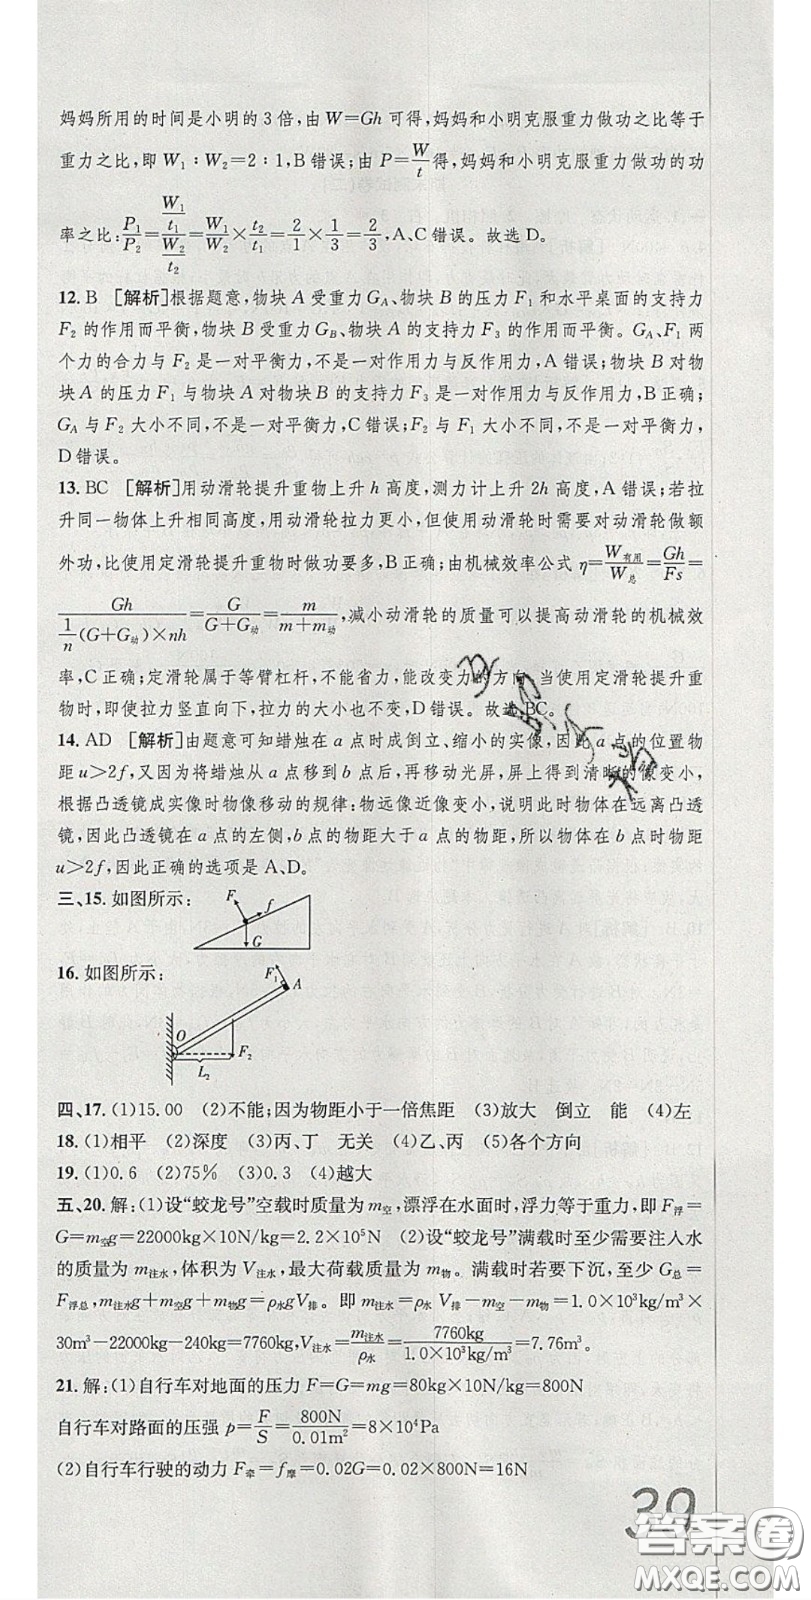 妈妈所用的时间是小明的3倍，由W=Gh可得，妈妈和小明克服重力做功之比等于
重力之比，即W₁∶W₂=2∶1，B错误；由P=W/t得，妈妈和小明克服重力做功的功
率之比：P₁/P₂=(W₁/t₁)/(W₂/t₂)=W₁/W₂×t₂/t₁=2/1×1/3=2/3，A、C错误。故选D。
12.B [解析]根据题意，物块A受重力G_A、物块B的压力F₁和水平桌面的支持力
F₂的作用而平衡，物块B受重力G_B、物块A的支持力F₃的作用而平衡。G_A、F₁两
个力的合力与F₂是一对平衡力，不是一对作用力与反作用力，A错误；物块B对物
块A的压力F₁与物块A对物块B的支持力F₃是一对作用力与反作用力，B正确；
G_A与F₂大小不同，不是一对平衡力，C错误；F₁与F₂大小不同，不是一对平衡力，
D错误。
13.BC [解析]用动滑轮提升重物上升h高度，测力计上升2h高度，A错误；若拉
升同一物体上升相同高度，用动滑轮拉力更小，但使用动滑轮时需要对动滑轮做额
外功，比使用定滑轮提升重物时做功要多，B正确；由机械效率公式η=W有用/W总=Gh/Fs=
Gh/(1/n(G+G动)×nh)=G/(G+G动)=m/(m+m动)，减小动滑轮的质量可以提高动滑轮的机械效
率，C正确；定滑轮属于等臂杠杆，不能省力，能改变力的方向，当使用定滑轮提升重
物时，即使拉力竖直向下，拉力的大小也不变，D错误。故选BC。
14.AD [解析]由题意可知蜡烛在a点时成倒立、缩小的实像，因此a点的位置物
距u>2f，又因为将蜡烛从a点移到b点后，再移动光屏，屏上得到清晰的像变小，
根据凸透镜成实像时物像移动的规律：物远像近像变小，说明此时物体在远离凸透
镜，因此凸透镜在a点的左侧，b点的物距大于a点的物距，所以物体在b点时物距
u>2f，因此正确的选项是A、D。
三、15.如图所示：
F
f
G
16.如图所示：
F₁
A
O
F₂
L₂
四、17.(1)15.00 (2)不能；因为物距小于一倍焦距 (3)放大 倒立 能 (4)左
18.(1)相平 (2)深度 (3)丙、丁 无关 (4)乙、丙 (5)各个方向
19.(1)0.6 (2)75% (3)0.3 (4)越大
五、20.解：(1)设“蛟龙号”空载时质量为m空，漂浮在水面时，浮力等于重力，即F浮=
G=m空g=22000kg×10N/kg=2.2×10⁵N (2)设“蛟龙号”满载时至少需要注入水
的质量为m注水，体积为V注水，最大荷载质量为m物。满载时若要下沉，至少G总=
F浮总，m注水g+m空g+m物g=ρ水gV排。即m注水=ρ水V排-m空-m物=1.0×10³kg/m³×
30m³-22000kg-240kg=7760kg，V注水=m注水/ρ水=7760kg/1.0×10³kg/m³=7.76m³。
21.解：(1)自行车对地面的压力F=G=mg=80kg×10N/kg=800N
自行车对路面的压强p=F/S=800N/0.01m²=8×10⁴Pa
(2)自行车行驶的动力F牵=f摩=0.02G=0.02×800N=16N
39
答案卷
MXQE.COM